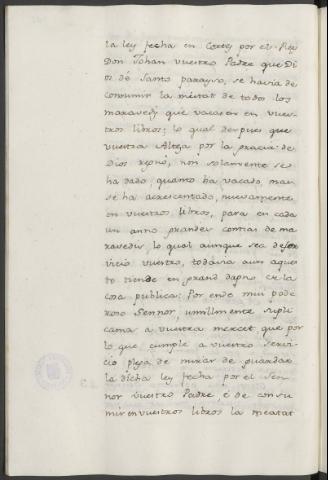 la ley fecha en Cortes por el Rey
Don Johan vuestro Padre que Di
os dé Santo parayso, se havia de
consumir la meatat de todos los
maravedis que vacasen en vues-
tros libros; lo qual despues que
vuestra Alteza por la gracia de
Dios reynó, non solamente se
ha dado, quanto ha vacado, mas
se ha acrescentado, nuevamente
en vuestros libros, para en cada
un anno grandes contias de ma
ravedis, lo qual aunque sea deser
vicio vuestro, todavia aun aques
to tiende en grand dapno en la
cosa publica: Por ende mui pode
roso Sennor, umillmente supli
camos a vuestra mercet que por
lo que cumple a vuestro servi-
cio plega de mirar de guardar
la dicha ley fecha por el Sen-
nor vuestro Padre, é de consu-
mir en vuestros libros la meatat